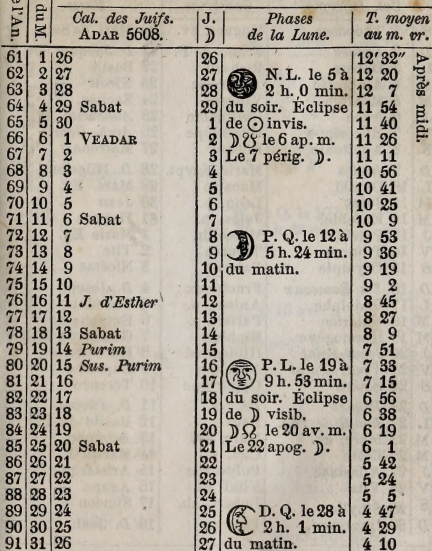 de l'An.
du M.
Cal. des Juifs.
ADAR 5608.
J.
☽
Phases
de la Lune.
T. moyen
au m. vr.
61 1 26 26 12'32"
62 2 27 27 N. L. le 5 à 12 20
63 3 28 28 2 h. 0 min. 12 7
64 4 29 Sabat 29 du soir. Éclipse 11 54
65 5 30 1 de ☉ invis. 11 40
66 6 1 VEADAR 2 ☽☋ le 6 ap. m. 11 26
67 7 2 3 Le 7 périg. ☽. 11 11
68 8 3 4 10 56
69 9 4 5 10 41
70 10 5 6 10 25
71 11 6 Sabat 7 10 9
72 12 7 8 P. Q. le 12 à 9 53
73 13 8 9 5 h. 24 min. 9 36
74 14 9 10 du matin. 9 19
75 15 10 11 9 2
76 16 11 J. d'Esther 12 8 45
77 17 12 13 8 27
78 18 13 Sabat 14 8 9
79 19 14 Purim 15 7 51
80 20 15 Sus. Purim 16 P. L. le 19 à 7 33
81 21 16 17 9 h. 53 min. 7 15
82 22 17 18 du soir. Éclipse 6 56
83 23 18 19 de ☽ visib. 6 38
84 24 19 20 ☽☊ le 20 av. m. 6 19
85 25 20 Sabat 21 Le 22 apog. ☽. 6 1
86 26 21 22 5 42
87 27 22 23 5 24
88 28 23 24 5 5
89 29 24 25 D. Q. le 28 à 4 47
90 30 25 26 2 h. 1 min. 4 29
91 31 26 27 du matin. 4 10
Après midi.